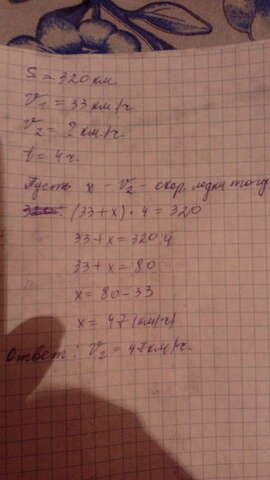 S = 320 км
V₁ = 33 км/ч
V₂ = ? км/ч.
t = 4 ч.
Пусть x - V₂ - скор. лодки тогд
(33+x)·4 = 320
33+x = 320:4
33+x = 80
x = 80-33
x = 47 (км/ч)
Ответ: V₂ = 47 км/ч.